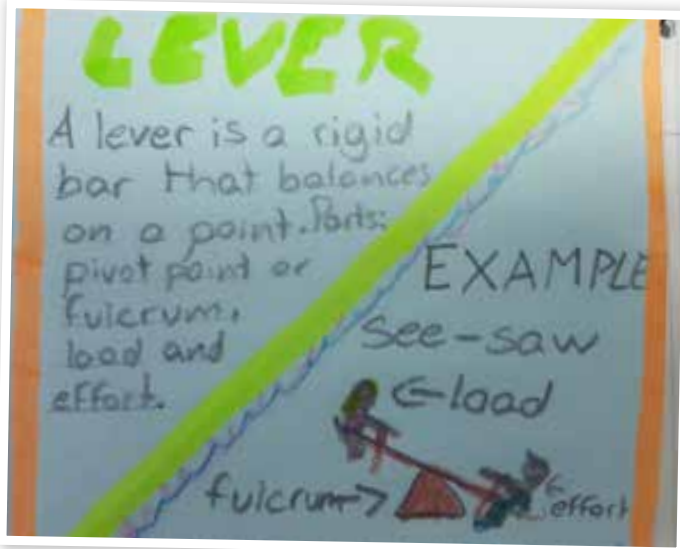 LEVER
A lever is a rigid
bar that balances
on a point. Parts:
pivot point or
fulcrum,
load and
effort.
EXAMPLE
see-saw
←load
fulcrum→
←effort